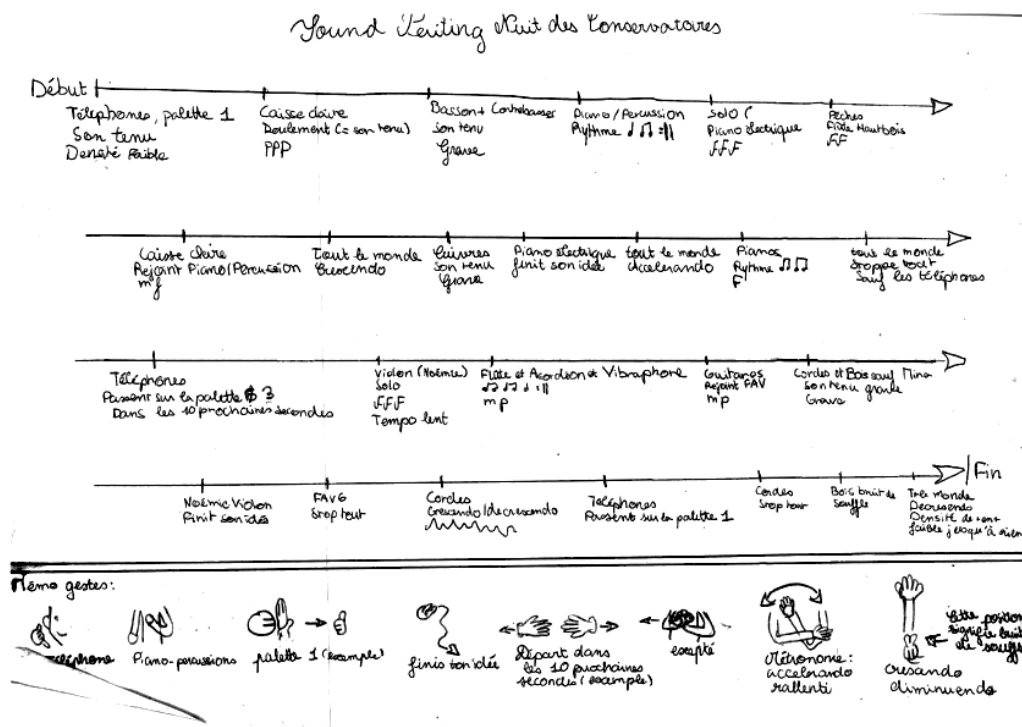 Sound Peinting Nuit des Conservatoires
Début
Téléphones, palette 1
Son tenu
Densité faible
Caisse claire
Roulement (= son tenu)
PPP
Basson + Contrebasses
Son tenu
Grave
Piano / Percussion
Rythme
Solo
Piano électrique
FFF
Pêches
Flûte Hautbois
FF
Caisse claire
Rejoint Piano/Percussion
mf
Tout le monde
Crescendo
Cuivres
Son tenu
Grave
Piano électrique
finit son idée
tout le monde
Accelerando
Pianos
Rythme
F
tout le monde
stoppe tout
Sauf les téléphones
Téléphones
Passent sur la palette 3
Dans les 10 prochaines secondes
Violon (Noémie)
Solo
FFF
Tempo lent
Flûte et Acordéon et Vibraphone
mp
Guitares
Rejoint FAV
mp
Cordes et Bois sauf Nina
Son tenu
Grave
Noémie Violon
Finit son idée
FAVG
Stop tout
Cordes
Crescendo/decrescendo
Téléphones
Passent sur la palette 1
Cordes
Stop tout
Bois bruit de
souffle
monde
Decrescendo
Densité de + en +
faible jusqu'à rien
Fin
Mémo gestes:
téléphone
Piano-percussions
palette 1 (example)
finis ton idée
Départ dans
les 10 prochaines
secondes (example)
exepté
Métronome:
accelerando
rallenti
cresando
diminuendo
Cette position
signifie bruit
de souffle